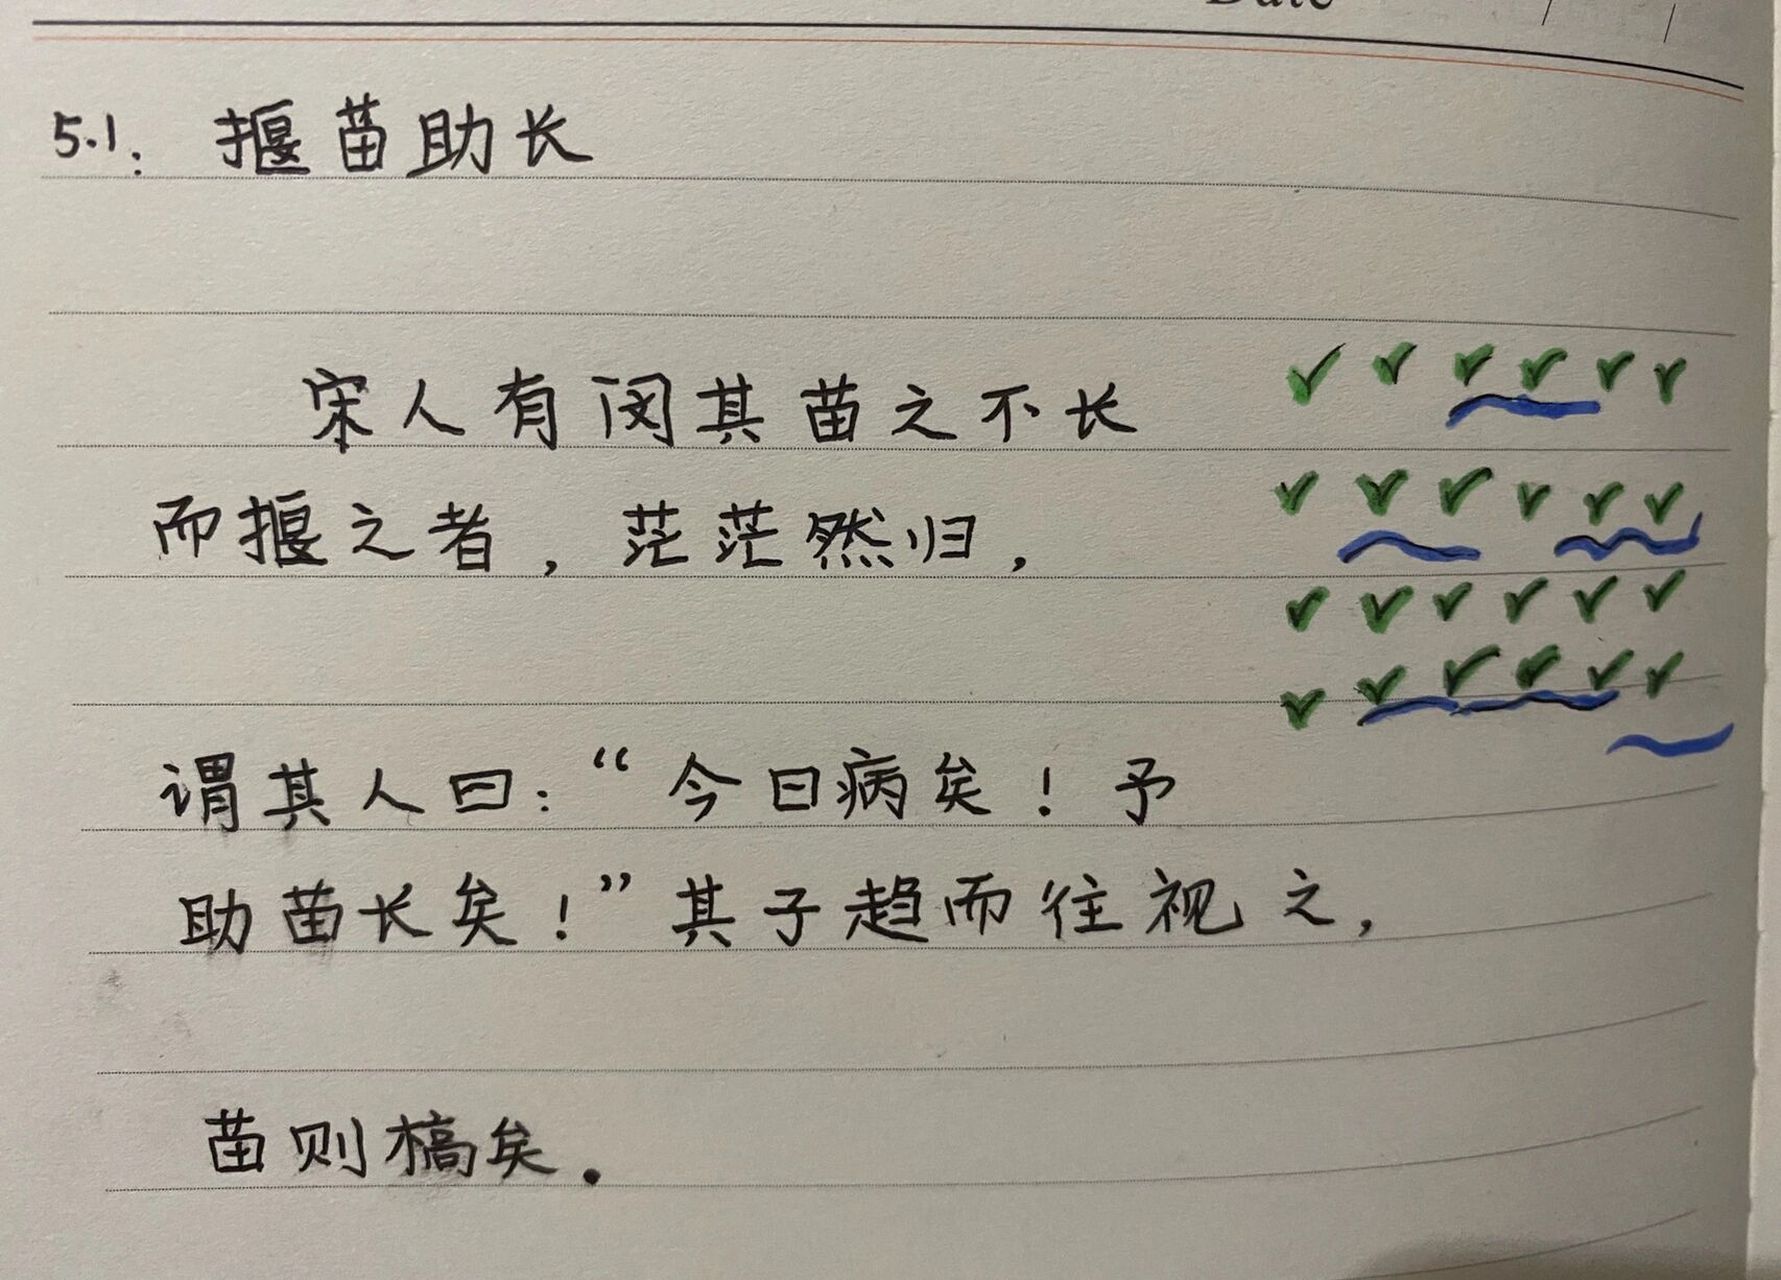 Date
5.1: 揠苗助长
宋人有闵其苗之不长
而揠之者，茫茫然归，
谓其人曰：“今日病矣！予
助苗长矣！”其子趋而往视之，
苗则槁矣.